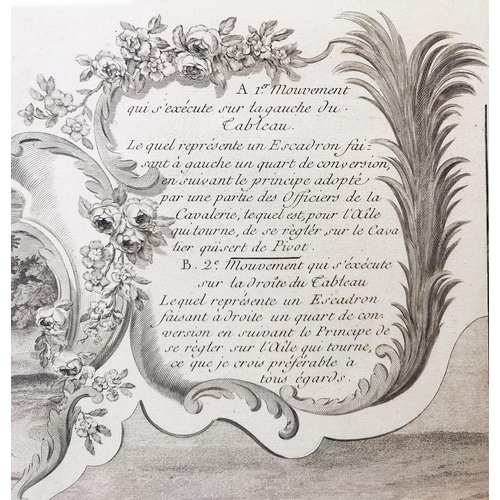 A 1.er Mouvement
qui s'exécute sur la gauche du
Tableau.
Le quel représente un Escadron fai-
sant à gauche un quart de conversion,
en suivant le principe adopté
par une partie des Officiers de la
Cavalerie, le quel est, pour l'Aîle
qui tourne, de se règler, sur le Cava
lier qui sert de Pivot.
B. 2.e Mouvement qui s'exécute
sur la droite du Tableau
Le quel représente un Escadron
faisant à droite un quart de con-
version en suivant le Principe de
se règler sur l'Aîle qui tourne,
ce que je crois préférable à
tous égards.